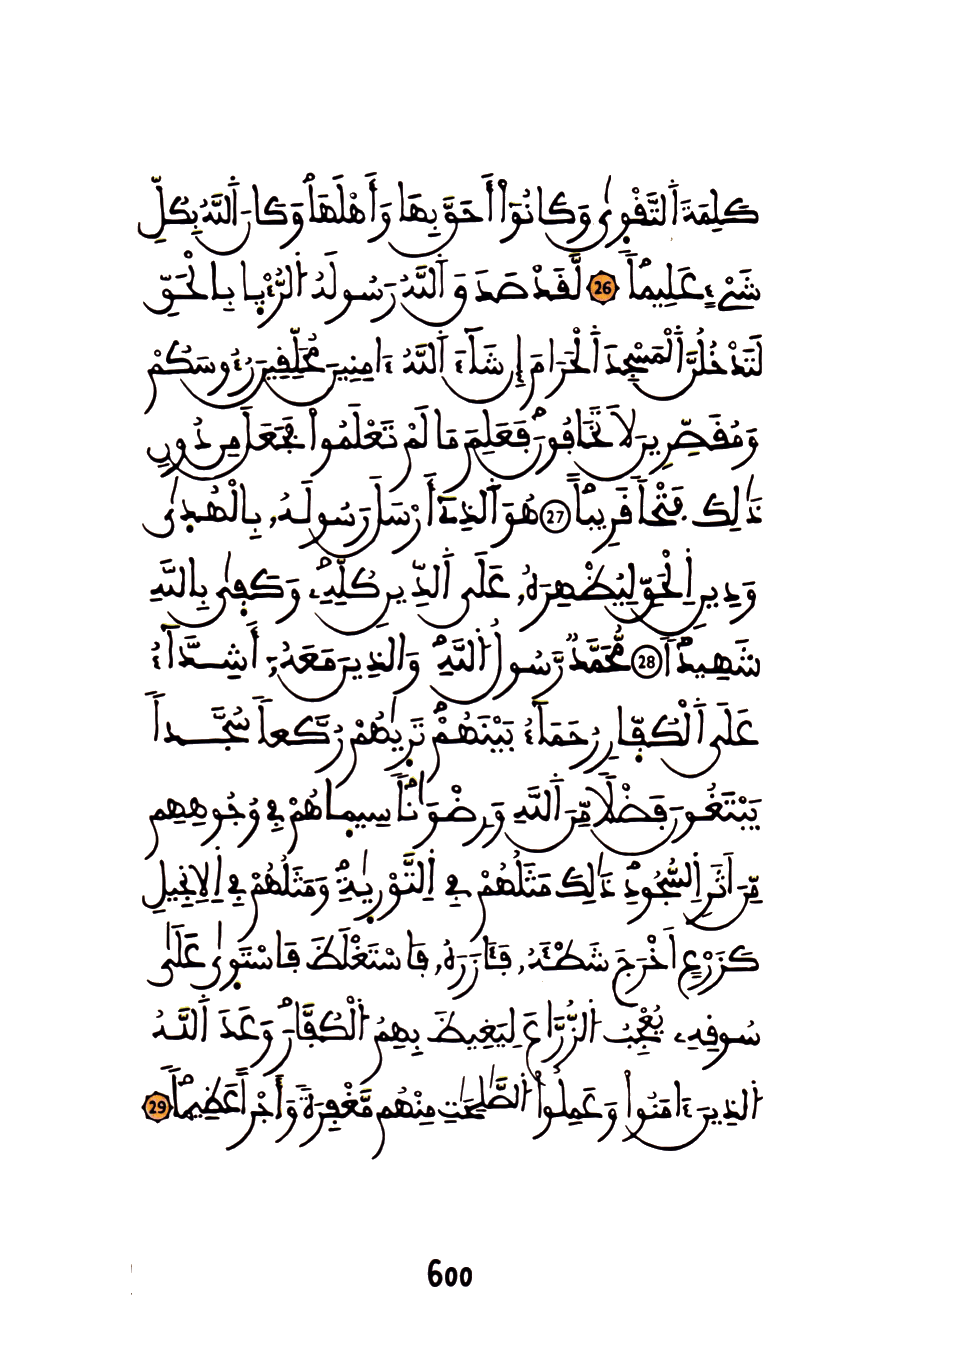 كَلِمَةَ اَ۬لتَّقْو۪ىٰ وَكَانُوٓاْ أَحَقَّ بِهَا وَأَهْلَهَاۖ وَكَانَ اَ۬للَّهُ بِكُلِّ
شَےْءٍ عَلِيماٗۖ 26 لَّقَدْ صَدَقَ اَ۬للَّهُ رَسُولَهُ اُ۬لرُّءْي۪ا بِالْحَقِّ
لَتَدْخُلُنَّ اَ۬لْمَسْجِدَ اَ۬لْحَرَامَ إِن شَآءَ اَ۬للَّهُ ءَامِنِينَ مُحَلِّقِينَ رُءُوسَكُمْ
وَمُقَصِّرِينَ لَا تَخَافُونَۖ فَعَلِمَ مَا لَمْ تَعْلَمُواْۖ فَجَعَلَ مِن دُونِ
ذَٰلِكَ فَتْحاٗ قَرِيباٗۖ 27 هُوَ اَ۬لذِےٓ أَرْسَلَ رَسُولَهُۥ بِالْهُد۪ىٰ
وَدِينِ اِ۬لْحَقِّ لِيُظْهِرَهُۥ عَلَى اَ۬لدِّينِ كُلِّهِۦۖ وَكَف۪ىٰ بِاللَّهِ
شَهِيداٗۖ 28 مُّحَمَّدٞ رَّسُولُ اُ۬للَّهِۖ وَالذِينَ مَعَهُۥٓ أَشِدَّآءُ
عَلَى اَ۬لْكُفّ۪ارِ رُحَمَآءُ بَيْنَهُمْۖ تَر۪ىٰهُمْ رُكَّعاٗ سُجَّداٗ
يَبْتَغُونَ فَضْلاٗ مِّنَ اَ۬للَّهِ وَرِضْوَٰناٗۖ سِيم۪اهُمْ فِے وُجُوهِهِم
مِّنَ اَثَرِ اِ۬لسُّجُودِۖ ذَٰلِكَ مَثَلُهُمْ فِے اِ۬لتَّوْر۪يٰةِۖ وَمَثَلُهُمْ فِے اِ۬لِانجِيلِ
كَزَرْعٍ اَخْرَجَ شَطْـَٔهُۥ فَـَٔازَرَهُۥ فَاسْتَغْلَظَ فَاسْتَو۪ىٰ عَلَىٰ
سُوقِهِۦ يُعْجِبُ اُ۬لزُّرَّاعَ لِيَغِيظَ بِهِمُ اُ۬لْكُفَّارَۖ وَعَدَ اَ۬للَّهُ
اُ۬لذِينَ ءَامَنُواْ وَعَمِلُواْ اُ۬لصَّٰلِحَٰتِ مِنْهُم مَّغْفِرَةٗ وَأَجْراً عَظِيماٗۖ 29
600